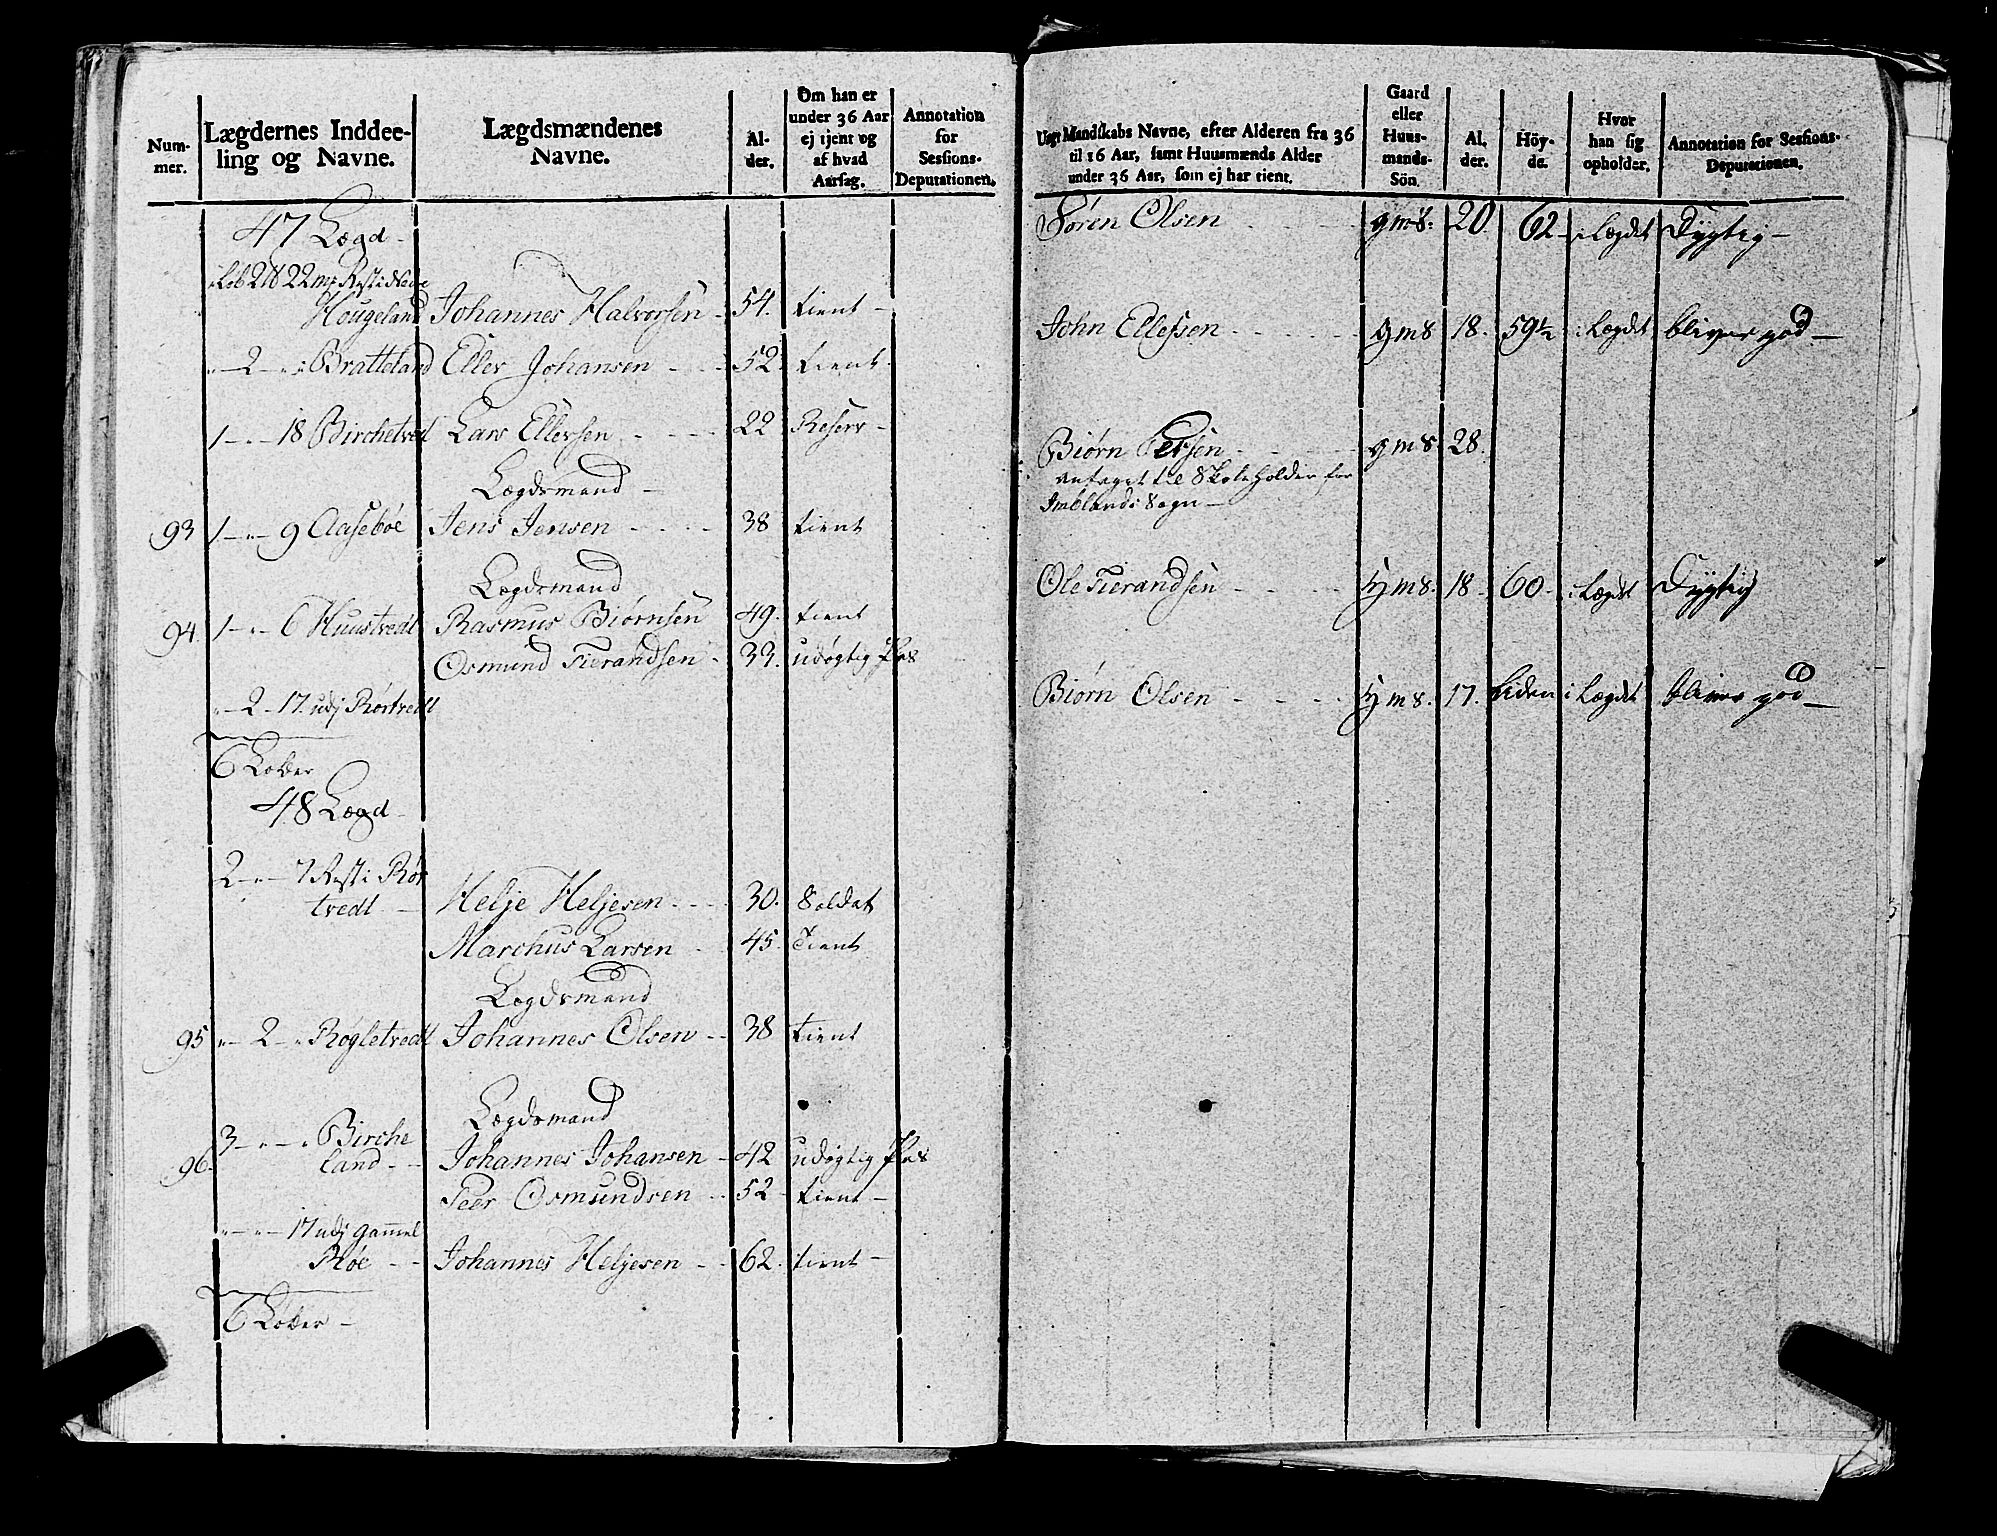 Num-
mer.
Lægdernes Inddee-
ling og Navne.
Lægdsmændenes
Navne.
Al-
der.
Om han er
under 36 Aar
ej tjent og
af hvad
Aarsag.
Annotation
for
Sessions-
Deputationen.
47 Lægd
Løb 2 22 mk Rest i Nedre
Hougeland Johannes Halvorsen 54. tient
2 Bratteland Eller Johansen 52 tient
1 18 Birchetvedt Lars Ellersen 22 Reserv
Lægdsmand
93 1 9 Aasebøe Jens Jensen 38 tient
Lægdsmand
94. 1 6 Huustvedt Rasmus Biørnsen 49. tient
Osmund Tierandsen 33. udøgtig Pas
2 17. udj Røstvedt
6 Løber
48 Lægd
2 7 Rest i Røs
tvedt Helje Heljesen 30. Soldat
Marchus Larsen 45. Tient
Lægdsmand
95 2 Røgletvedt Johannes Olsen 38 tient
Lægdsmand
96. 3 Birche
land Johannes Johansen 42 udøgtig Pas
Peer Osmundsen 52 tient
17 udj Gammel
Røe Johannes Heljesen 62. tient
6 Løber
Ungt Mandskabs Navne, efter Alderen fra 36
til 16 Aar, samt Huusmænds Alder
under 36 Aar, som ej har tient.
Gaard
eller
Huus-
mands-
Sön.
Al.
der.
Höy-
de.
Hvor
han sig
opholder.
Annotation for Sessions-
Deputationen.
Søren Olsen gms. 20 62 i Lægdet Dygtig
John Ellefsen gms 18. 59½ i Lægdet bliver god
Biørn Persen gms 28.
antaget til Skoleholder for
Imblands Sogn
Ole Tierandsen gms. 18 60 i Lægdet Dygtig
Biørn Olsen gms. 17. Liden i Lægdet bliver god